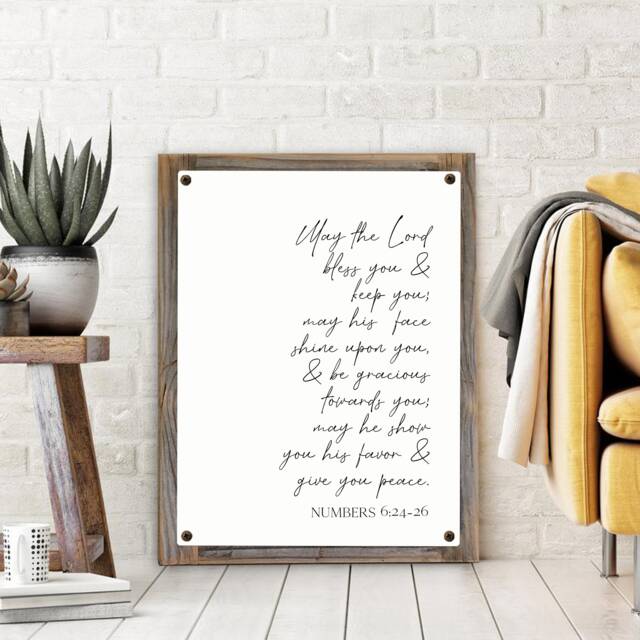 May the Lord
bless you &
keep you;
may his face
shine upon you,
& be gracious
towards you;
may he show
you his favor &
give you peace.
NUMBERS 6:24-26